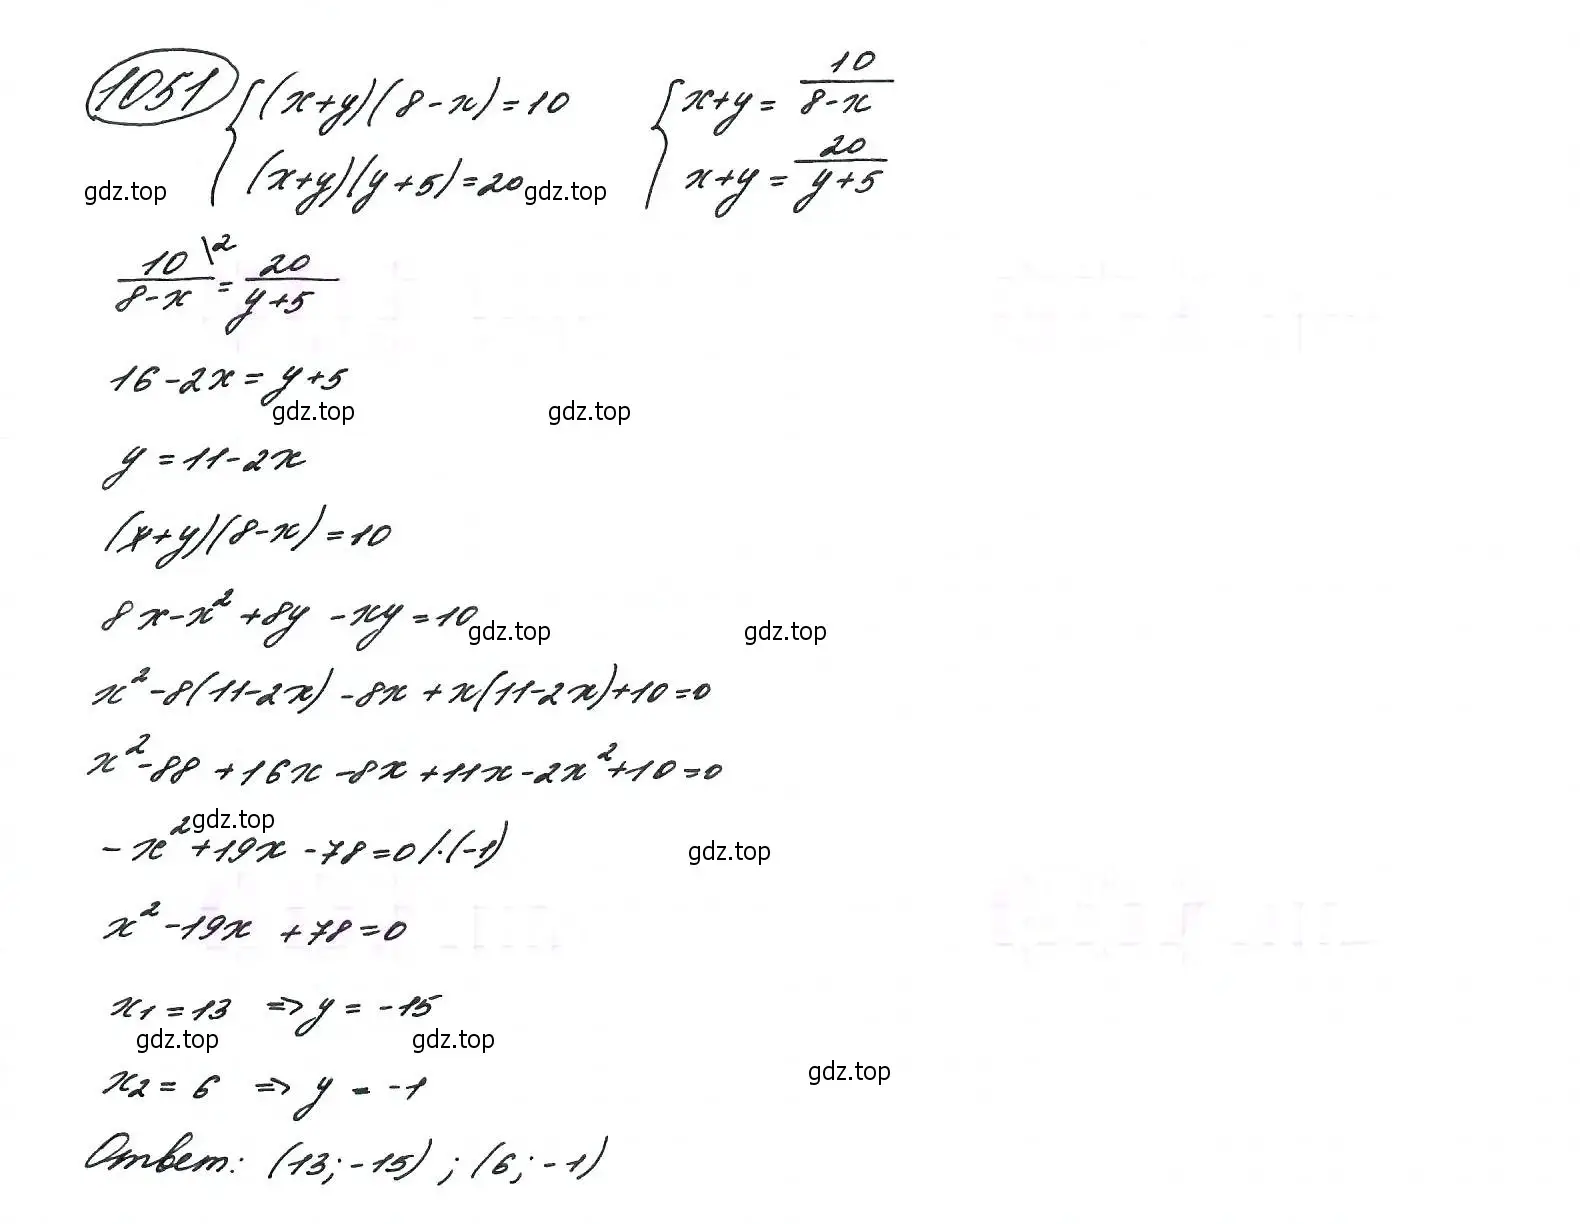 1051 { (x+y)(8-x)=10 { x+y = 10/(8-x)
gdz.top (x+y)(y+5)=20 gdz.top x+y = 20/(y+5)
10/(8-x) \2 = 20/(y+5)
16-2x = y+5
gdz.top gdz.top
y = 11-2x
(x+y)(8-x)=10
8x-x²+8y-xy=10
gdz.top gdz.top
x²-8(11-2x)-8x+x(11-2x)+10=0
x²-88+16x-8x+11x-2x²+10=0
gdz.top
-x²+19x-78=0 /·(-1)
gdz.top
x²-19x+78=0
x₁=13 => y = -15
gdz.top gdz.top
gdz.top
x₂=6 => y = -1
Ответ: (13; -15) ; (6; -1)